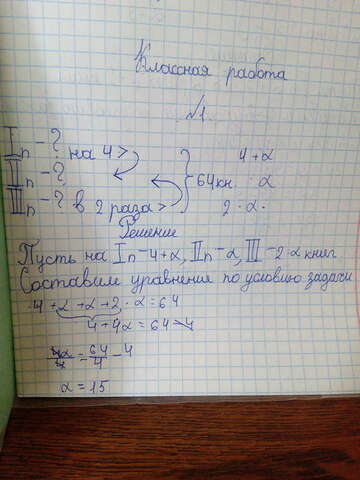 Классная работа
№1.
Iп - ? на 4 > 4 + α
IIп - ? 64кн. α
IIIп - ? в 2 раза > 2 · α.
Решение
Пусть на Iп - 4 + α, IIп - α, III - 2 · α книг
Составим уравнения по условию задачи
4 + α + α + 2 · α = 64
4 + 4α = 64 - 4
4α/4 = 64/4 - 4
α = 15